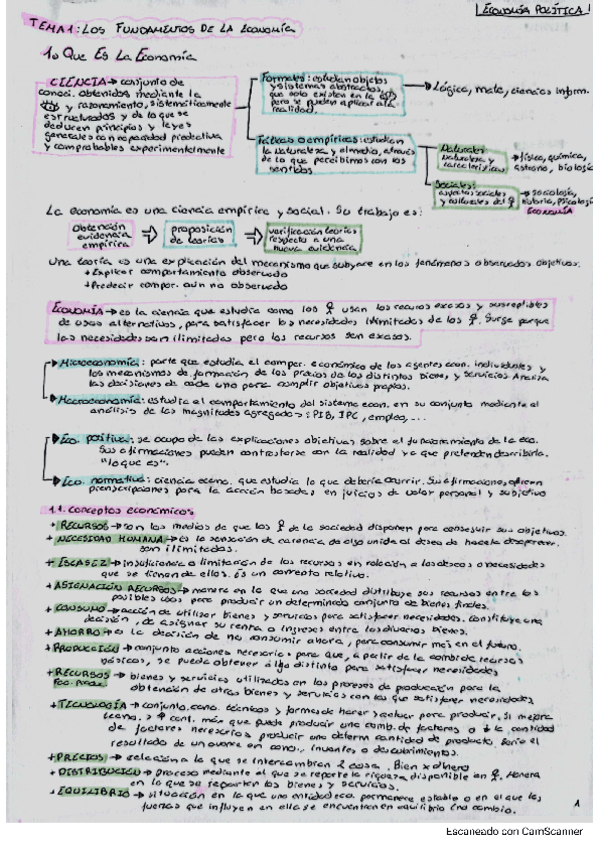 ECONOMÍA POLÍTICA
TEMA 1: LOS FUNDAMENTOS DE LA ECONOMÍA
1. Que Es La Economía
CIENCIA → conjunto de
conoci. obtenidos mediante la
y razonamiento, sistemáticamente
estructurados y de lo que se
deducen principios y leyes
generales con capacidad predictiva
y comprobables experimentalmente
Formales: estudian objetos
y sistemas abstractos,
que solo existen en la
pero se pueden aplicar a la
realidad.
→ Lógica, mate, ciencias inform.
Fácticas o empíricas: estudian
la naturaleza y el medio, a través
de lo que percibimos con los
sentidos
Naturales:
naturaleza y
características
→ física, química,
astrono, biología
Sociales:
aspectos sociales
y culturales del
→ sociología,
historia, psicología
ECONOMÍA
La economía es una ciencia empírica y social. Su trabajo es:
obtención
evidencia
empírica
proposición
de teorías
verificación teorías
respecto a una
nueva evidencia
Una teoría es una explicación del mecanismo que subyace en los fenómenos observados objetivos.
+ Explicar comportamiento observado
+ Predecir compor. aun no observado
ECONOMÍA → es la ciencia que estudia como los usan los recursos escasos y susceptibles
de usos alternativos, para satisfacer las necesidades ilimitadas de los . Surge porque
las necesidades son ilimitadas pero los recursos son escasos.
Microeconomía: parte que estudia el compor. económico de los agentes econ. individuales y
los mecanismos de formación de los precios de los distintos bienes y servicios. Analiza
las decisiones de cada uno para cumplir objetivos propios.
Macroeconomía: estudia el comportamiento del sistema econ. en su conjunto mediante el
análisis de las magnitudes agregadas: PIB, IPC, empleo, ...
Eco. positiva: se ocupa de las explicaciones objetivas sobre el funcionamiento de la eco.
Sus afirmaciones pueden contrastarse con la realidad ya que pretenden describirla.
"lo que es".
Eco. normativa: ciencia econo. que estudia lo que debería ocurrir. Sus afirmaciones, ofrecen
prescripciones para la acción basadas en juicios de valor personal y subjetivo
1.1. conceptos económicos
+ RECURSOS → son los medios de que los de la sociedad disponen para conseguir sus objetivos.
+ NECESIDAD HUMANA → es la sensación de carencia de algo unida al deseo de hacerla desaparecer.
son ilimitadas.
+ ESCASEZ → insuficiencia o limitación de los recursos en relación a los deseos o necesidades
que se tienen de ellos. Es un concepto relativo.
+ ASIGNACIÓN RECURSOS → manera en la que una sociedad distribuye sus recursos entre los
posibles usos para producir un determinado conjunto de bienes finales.
+ CONSUMO → acción de utilizar bienes y servicios para satisfacer necesidades. Constituye una
decisión, de asignar su renta o ingresos entre los diversos bienes.
+ AHORRO → es la decisión de no consumir ahora, para consumir más en el futuro.
+ PRODUCCIÓN → conjunto acciones necesarias para que, a partir de la comb. de recursos
básicos, se pueda obtener algo distinto para satisfacer necesidades
+ RECURSOS → bienes y servicios utilizados en los procesos de producción para la
obtención de otros bienes y servicios con los que satisfacer necesidades
+ TECNOLOGÍA → conjunto cono. técnicos y formas de hacer y actuar para producir. Si mejora
tecno. → cant. más que puede producir una comb. de factores o la cantidad
de factores necesarios producir una determ cantidad de producto. Sería el
resultado de un avance en conoc., inventos o descubrimientos.
+ PRECIOS → relación a la que se intercambian 2 cosas. Bien x dinero
+ DISTRIBUCIÓN → proceso mediante el que se reparte la riqueza disponible en . Manera
en la que se reparten los bienes y servicios.
+ EQUILIBRIO → situación en la que una entidad eco. permanece estable o en el que las
fuerzas que influyen en ella se encuentran en equilibrio (no cambio.
1
Escaneado con CamScanner